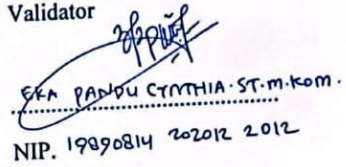 Validator
EKA PANDU CYNTHIA.ST.M.KOM.
NIP. 19890814 202012 2012